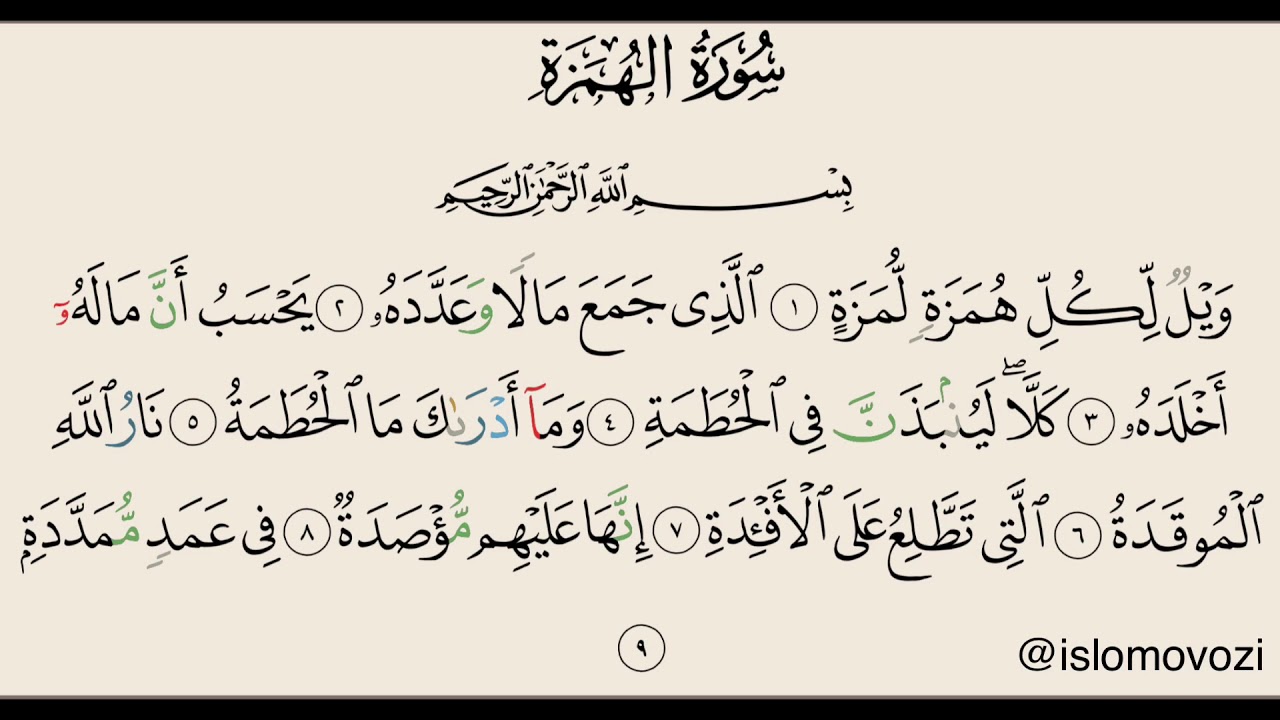 سُورَةُ الهُمَزَةِ
بِسْمِ ٱللَّهِ ٱلرَّحْمَٰنِ ٱلرَّحِيمِ
وَيْلٌ لِّكُلِّ هُمَزَةٍ لُّمَزَةٍ ١ ٱلَّذِى جَمَعَ مَالًا وَعَدَّدَهُۥ ٢ يَحْسَبُ أَنَّ مَالَهُۥٓ
أَخْلَدَهُۥ ٣ كَلَّاۖ لَيُنۢبَذَنَّ فِى ٱلْحُطَمَةِ ٤ وَمَآ أَدْرَىٰكَ مَا ٱلْحُطَمَةُ ٥ نَارُ ٱللَّهِ
ٱلْمُوقَدَةُ ٦ ٱلَّتِى تَطَّلِعُ عَلَى ٱلْأَفْـِٔدَةِ ٧ إِنَّهَا عَلَيْهِم مُّؤْصَدَةٌ ٨ فِى عَمَدٍ مُّمَدَّدَةٍۭ
٩
@islomovozi